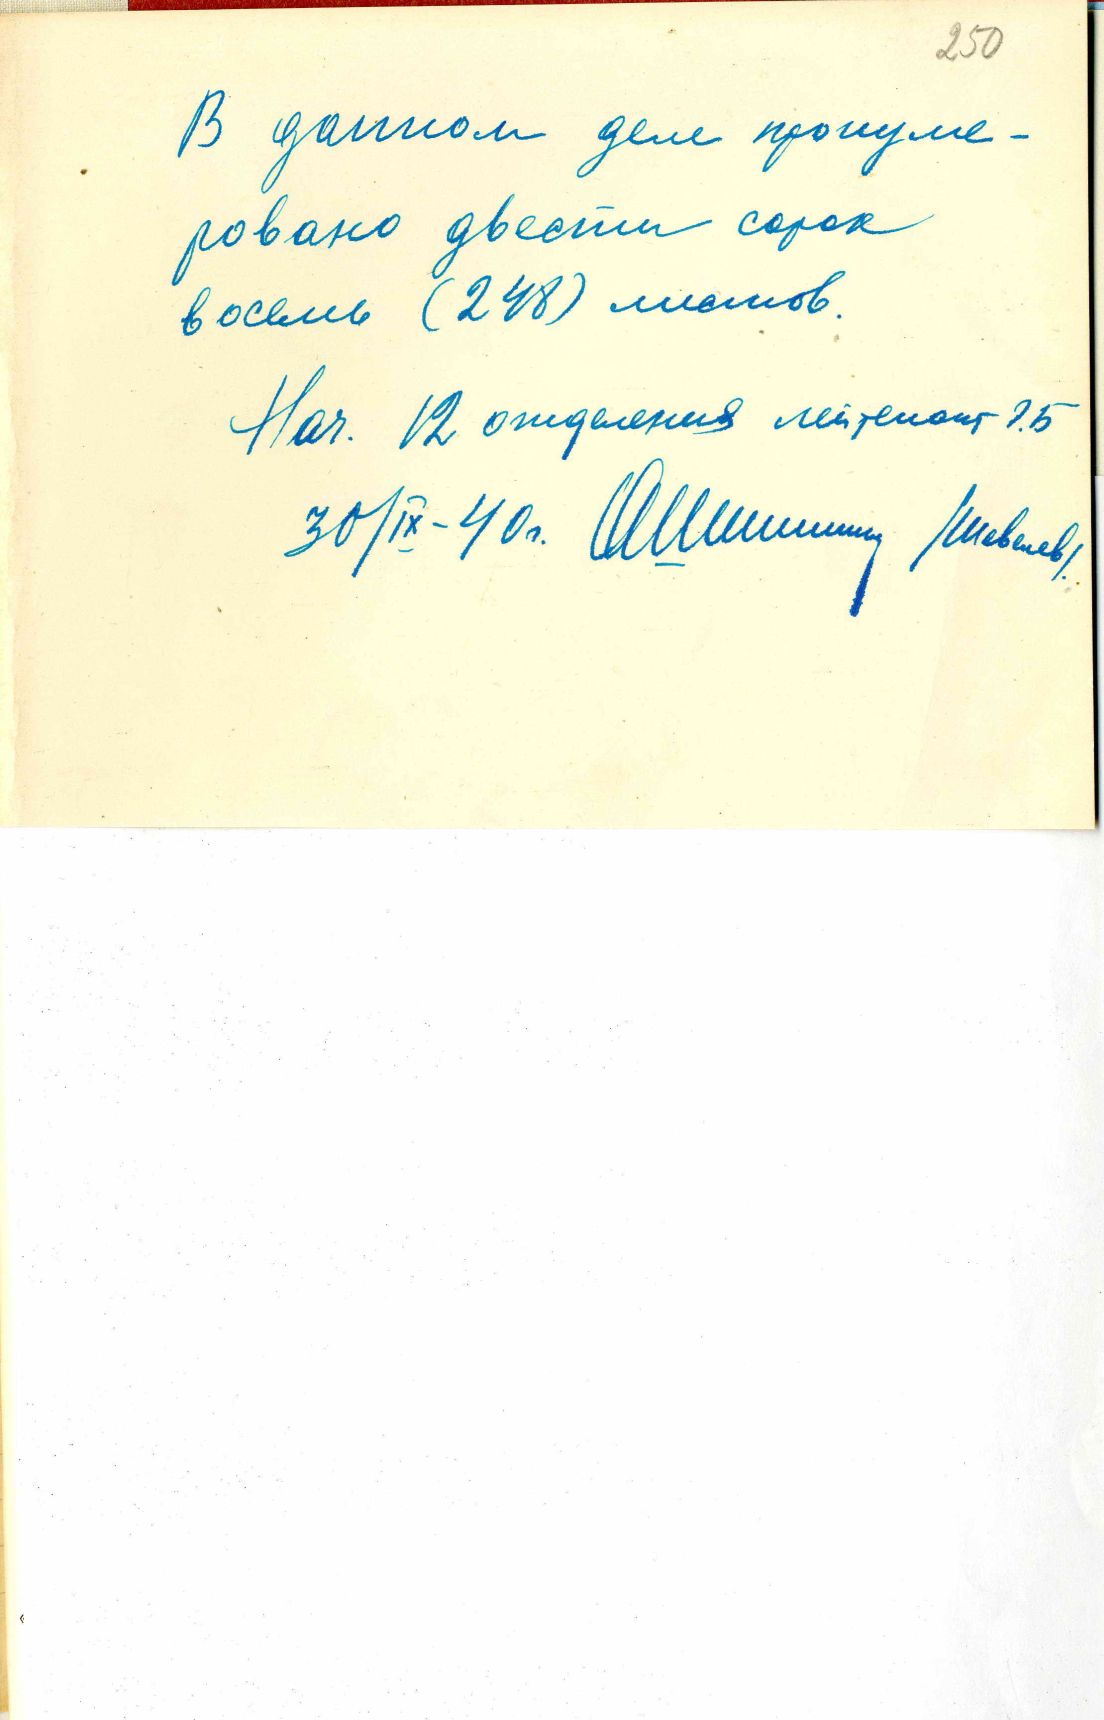 250
В данном деле прокуме-
ровано двести сорок
восемь (248) листов.
Нач. 12 отделения лейтенант Г.Б
30/IX-40г. /Шевелев/.